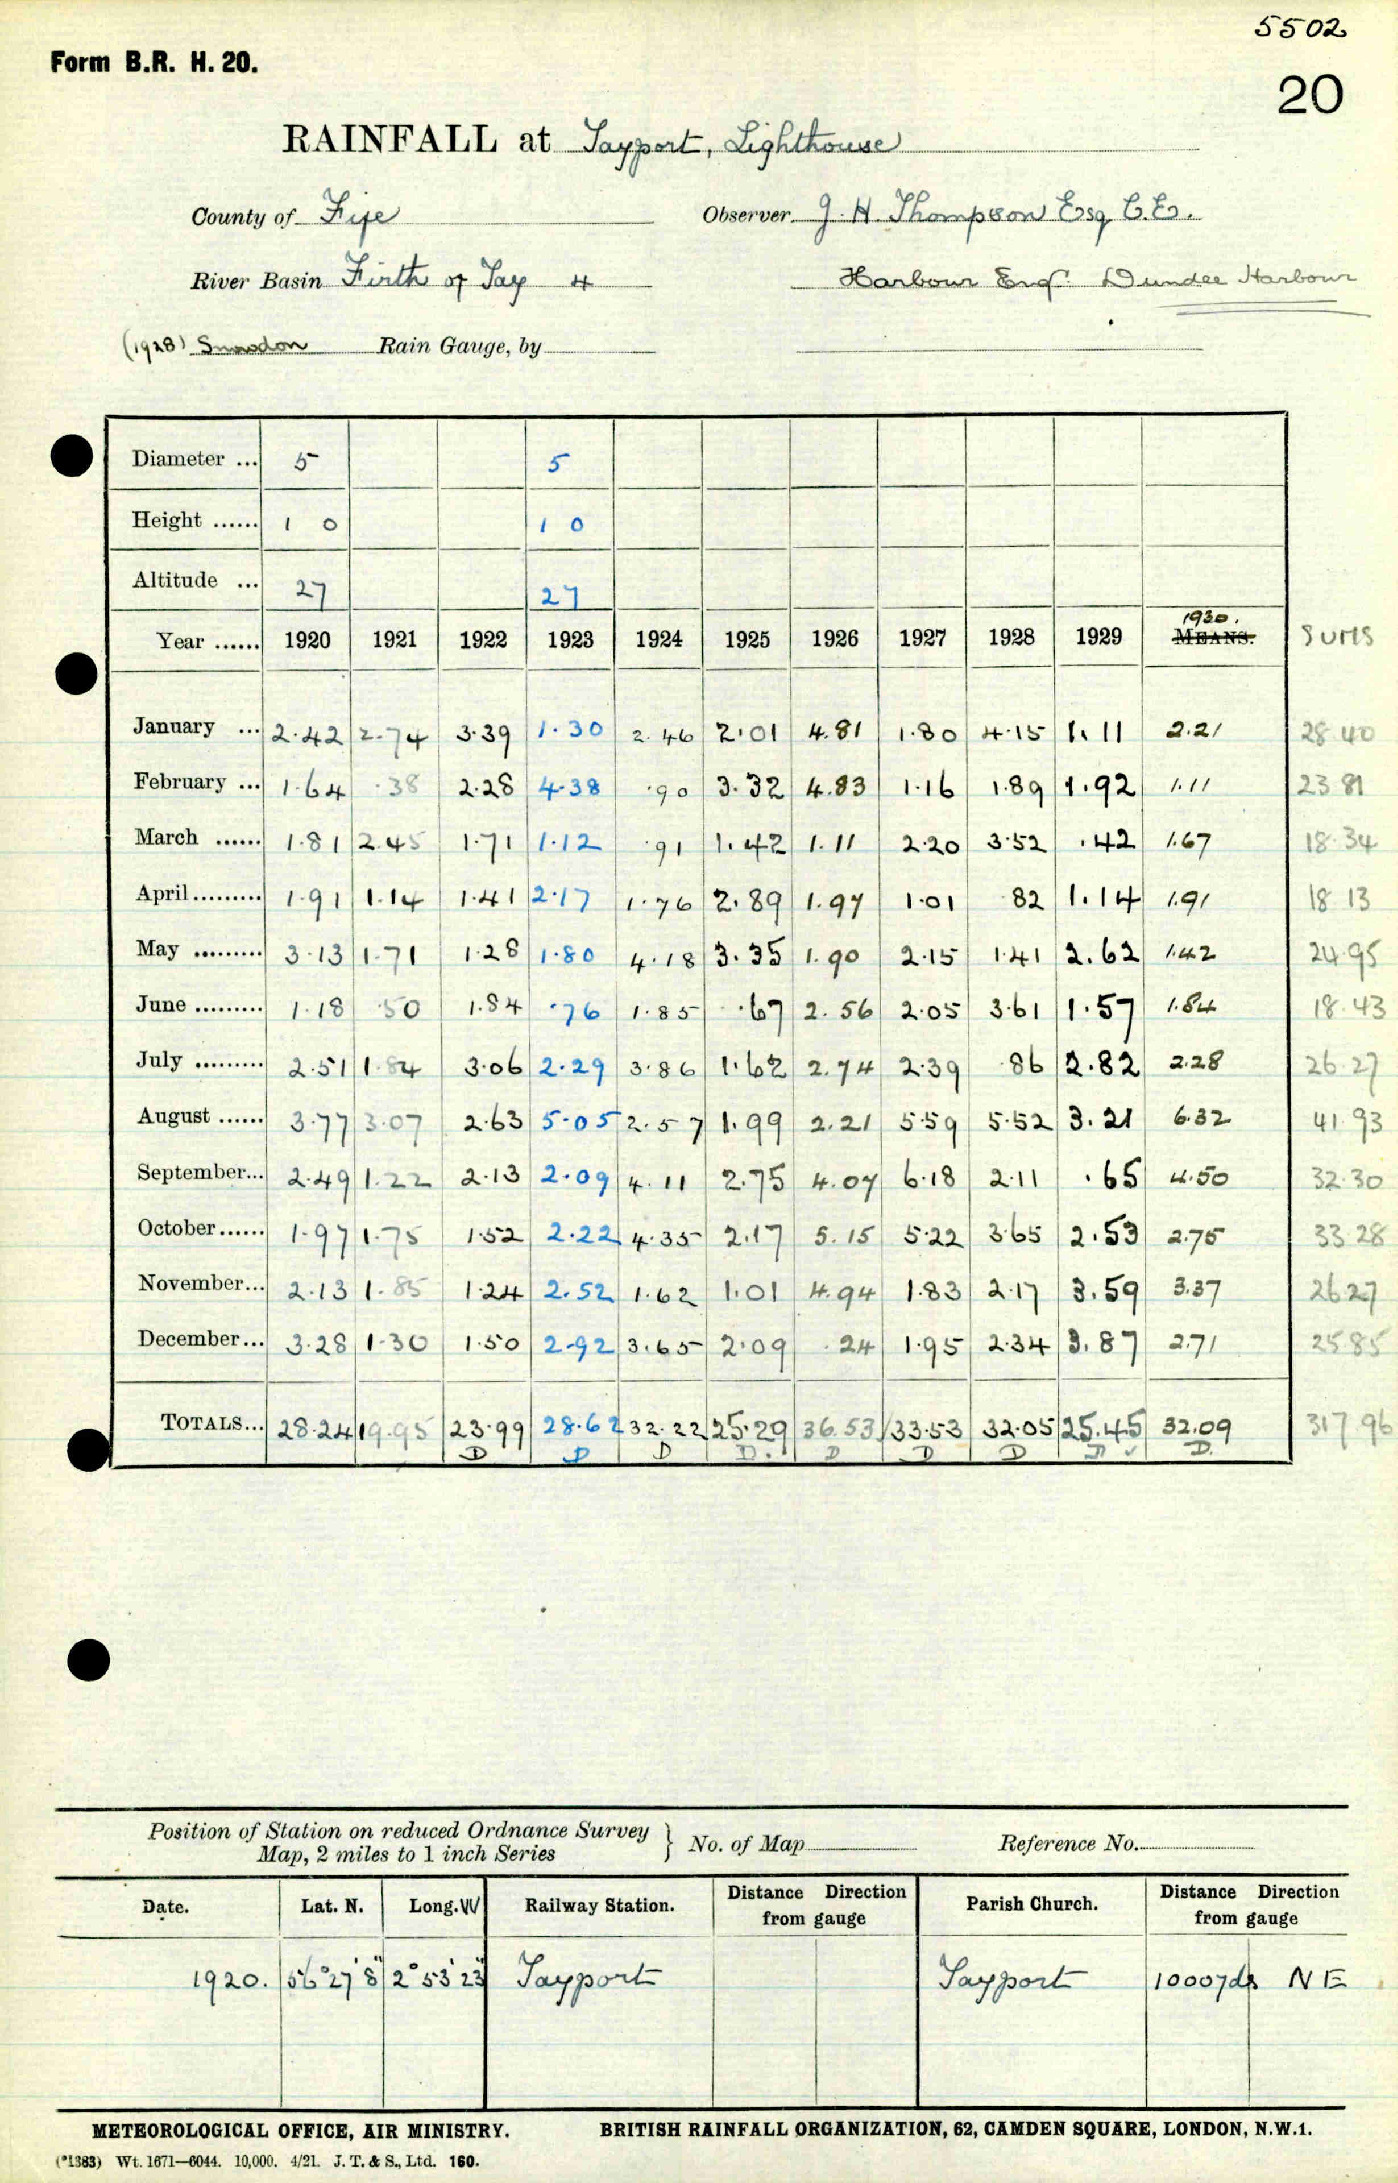 5502
Form B.R. H. 20.
20
RAINFALL at Tayport, Lighthouse
County of Fife Observer J. H. Thompson Esq C.E.
River Basin Firth of Tay 4 Harbour Engr. Dundee Harbour
(1928) Snowdon Rain Gauge, by
Diameter ... 5 5
Height ...... 1 0 1 0
Altitude ... 27 27
Year ...... 1920 1921 1922 1923 1924 1925 1926 1927 1928 1929 1930. MEANS. SUMS
January ... 2.42 2.74 3.39 1.30 2.46 2.01 4.81 1.80 4.15 1.11 2.21 28.40
February ... 1.64 .38 2.28 4.38 .90 3.32 4.83 1.16 1.89 1.92 1.11 23 81
March ...... 1.81 2.45 1.71 1.12 .91 1.42 1.11 2.20 3.52 .42 1.67 18.34
April......... 1.91 1.14 1.41 2.17 1.76 2.89 1.97 1.01 .82 1.14 1.91 18 13
May ......... 3.13 1.71 1.28 1.80 4.18 3.35 1.90 2.15 1.41 2.62 1.42 24.95
June ......... 1.18 .50 1.84 .76 1.85 .67 2.56 2.05 3.61 1.57 1.84 18.43
July ......... 2.51 1.84 3.06 2.29 3.86 1.62 2.74 2.39 .86 2.82 2.28 26.27
August ...... 3.77 3.07 2.63 5.05 2.57 1.99 2.21 5.59 5.52 3.21 6.32 41.93
September... 2.49 1.22 2.13 2.09 4.11 2.75 4.07 6.18 2.11 .65 4.50 32.30
October...... 1.97 1.75 1.52 2.22 4.35 2.17 5.15 5.22 3.65 2.53 2.75 33.28
November... 2.13 1.85 1.24 2.52 1.62 1.01 4.94 1.83 2.17 3.59 3.37 26.27
December... 3.28 1.30 1.50 2.92 3.65 2.09 .24 1.95 2.34 3.87 2.71 25.85
TOTALS... 28.24 19.95 23.99 28.62 32.22 25.29 36.53 33.53 32.05 25.45 32.09 317.96
D D D D. D D D D ✓ D.
Position of Station on reduced Ordnance Survey
Map, 2 miles to 1 inch Series } No. of Map Reference No.
Date. Lat. N. Long. W Railway Station. Distance Direction from gauge Parish Church. Distance Direction from gauge
1920. 56°27'8" 2°53'23" Tayport Tayport 1000yds NE
METEOROLOGICAL OFFICE, AIR MINISTRY. BRITISH RAINFALL ORGANIZATION, 62, CAMDEN SQUARE, LONDON, N.W.1.
(*1383) Wt. 1671—6044. 10,000. 4/21. J. T. & S., Ltd. 160.